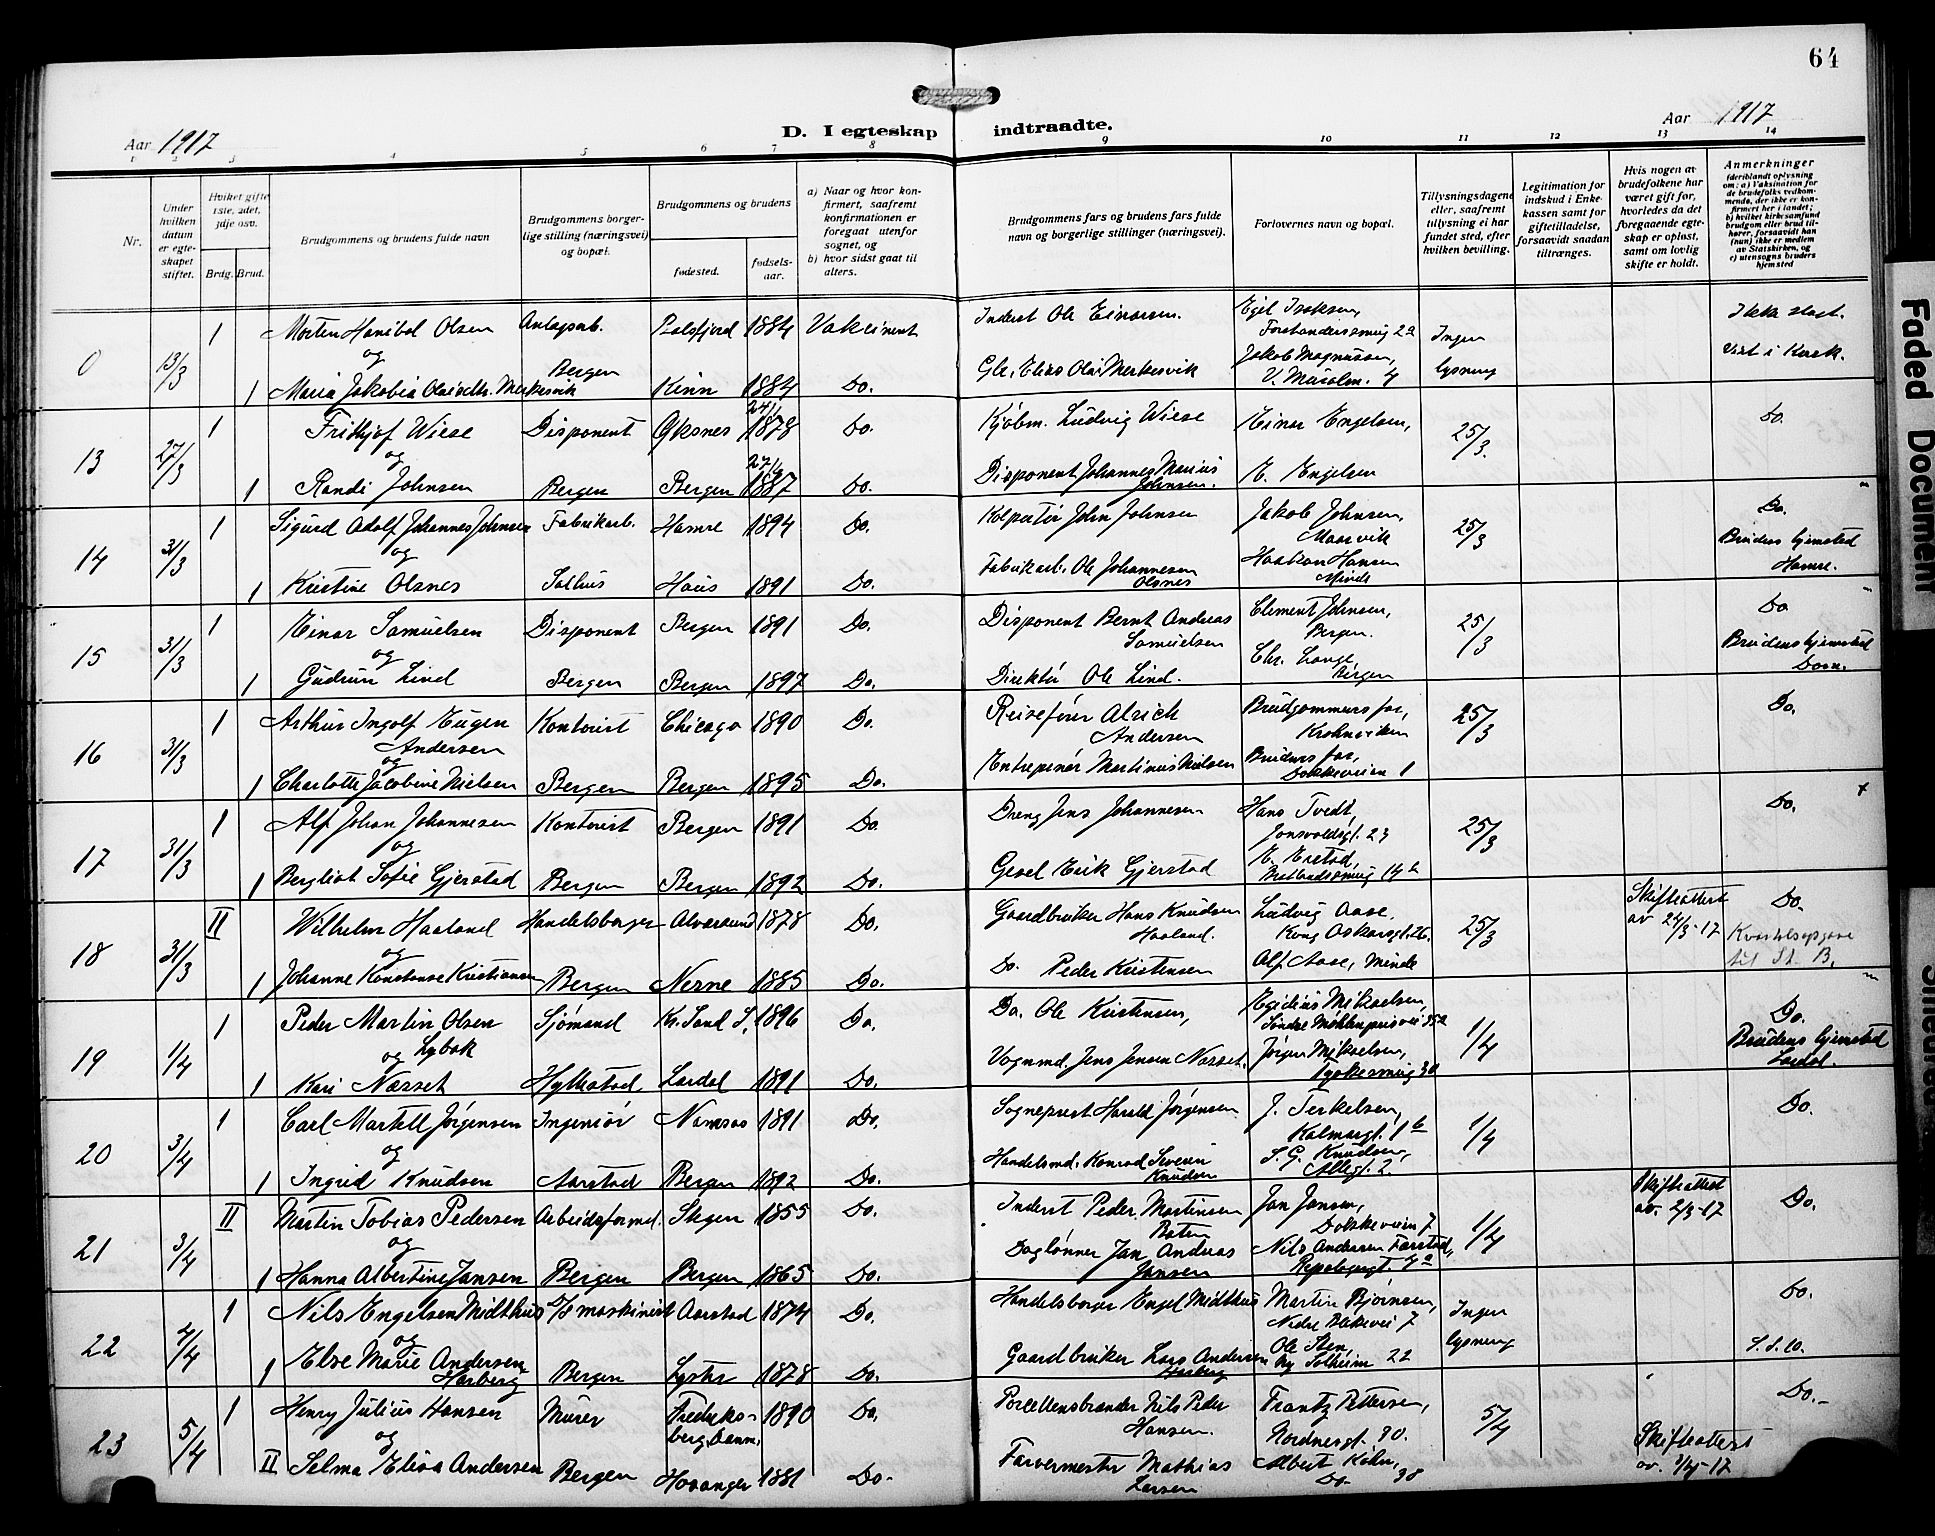 64
Aar 1917
D. I egteskap indtraadte.
Aar 1917
1 2 3 4 5 6 7 8 9 10 11 12 13 14
Nr.
Under hvilken datum er egteskapet stiftet.
Hvilket gifte 1ste, 2det, 3dje osv.
Brdg. Brud.
Brudgommens og brudens fulde navn
Brudgommens borgerlige stilling (næringsvei) og bopæl.
Brudgommens og brudens
fødested.
fødselsaar.
a) Naar og hvor konfirmert, saafremt konfirmationen er foregaat utenfor sognet, og
b) hvor sidst gaat til alters.
Brudgommens fars og brudens fars fulde navn og borgerlige stillinger (næringsvei).
Forlovernes navn og bopæl.
Tillysningsdagene eller, saafremt tillysning ei har fundet sted, efter hvilken bevilling.
Legitimation for indskud i Enkekassen samt for giftetilladelse, forsaavidt saadan tiltrænges.
Hvis nogen av brudefolkene har været gift før, hvorledes da det foregaaende egteskap er opløst, samt om lovlig skifte er holdt.
Anmerkninger
(deriblandt oplysning om: a) Vaksination for de brudefolks vedkommende, der ikke er konfirmert her i landet; b) hvilket kirkesamfund brudgom eller brud tilhører, forsaavidt han (hun) ikke er medlem av Statskirken, og c) utensogns bruders hjemsted
0 13/3 1 Morten Hanibal Olsen Anlagsarb. Balsfjord 1884 Vaksinert Inderst Ole Einarsen. Egil Isaksen, Ingen Ikke stast.
og Bergen Forstandersmug 2a
1 Maria Jakobia Olaisdtr. Merkesvik Kinn 1884 Do. Gbr. Elias Olai Merkesvik Jakob Magnusson, lysning viet i Kirk.
V. Muralm. 4
13 27/3 1 Frithjof Wiese Disponent Øksnes 24/1 1878 Do. Kjøbm. Ludvig Wiese Einar Engelsen, 25/3. Do.
og
1 Randi Johnsen Bergen Bergen 1887 Do. Disponent Johannes Marius Johnsen. E. Engelsen
14 31/3 1 Sigurd Adolf Johannes Johnsen Fabrikarb. Hamre 1894 Do. Kolportør John Johnsen Jakob Johnsen, 25/3 Do.
og Brudens hjemsted
1 Kristine Olsnes Salhus Haus 1891 Do. Fabrikarb. Ole Johannesen Olsnes Haakon Hansen Minde Hamre.
15 31/3 1 Einar Samuelsen Disponent Bergen 1891 Do. Disponent Bernt Andreas Samuelsen Clement Johnsen, Bergen. 25/3 Do
og Brudens hjemsted
1 Gudrun Lind Bergen Bergen 1897 Do. Direktør Ole Lind. Chr. Lange, Bergen
16 31/3 1 Arthur Ingolf Eugen Andersen Kontorist Chicago 1890 Do. Reisefører Alrich Andersen Brudgommens far, Krohnviken 25/3 Do.
og
1 Charlotte Jacobine Nielsen Bergen Bergen 1895 Do. Entreprenør Martinus Nielsen Brudens far, Dokkeveien 1
17 31/3 1 Alf Johan Johannesen Kontorist Bergen 1891 Do. Dreng Jens Johannesen Hans Tvedt, Jonsvoldsgt. 23 25/3 Do. +
og
1 Bergliot Sofie Gjerstad Bergen Bergen 1892 Do. Gesel Erik Gjerstad
18 31/3 II Wilhelm Haaland Handelsborger Alversund 1878 Do. Gaardbruker Hans Knudsen Haaland. Ludvig Aase, Kong Oskarsgt. 26. 25/3 Skifteattest av 24/3-17 Do.
og Kvartalsopgave til St. B.
1 Johanne Konstanse Kristiansen Bergen Nesne 1885 Do. Do. Peder Kristensen Alf Aase, Minde
19 1/4 1 Peder Martin Olsen Lybak Sjømand Kr.Sand S. 1896 Do. Do. Ole Kristensen, Egidius Mikaelsen, Søndre Møhlenprisvei 35a 1/4 Do.
og Brudens hjemsted
1 Kari Næsset Hylkstad Lærdal 1891 Do. Vognmd. Jens Jensen Næsset. Jørgen Mikaelsen, 30 Lærdal.
20 3/4 1 Carl Martell Jørgensen Ingeniør Namsos 1891 Do. Sogneprest Harald Jørgensen J. Terkelsen, Kalmargt. 1b 1/4 Do.
og
1 Ingrid Knudsen Aarstad Bergen 1892 Do. Handelsmd. Konrad Severin Knudsen S. G. Knudsen, Allegt. 2.
21 3/4 II Martin Tobias Pedersen Arbeidsformd. Stegen 1855 Do. Inderst Peder Martinsen Jan Jansen, Dokkeveien 7 1/4 Skifteattest av. 2/3-17 Do.
og
1 Hanna Albertine Jansen Bergen Bergen 1865 Do. Daglønner Jan Andreas Jansen Nils Andersen Farstad, 4a
22 4/4 1 Nils Engelsen Midthus D/S maskinist Aarstad 1874 Do. Handelsborger Engel Midthus Martin Bjørnsen, 7 Ingen Do.
og
1 Else Marie Andersen Harberg Bergen Lyster 1878 Do. Gaardbruker Lars Andersen Harberg Ole Steen, Ny Solheim 22 lysning
23 5/4 1 Henry Julius Hansen Murer Fredriksberg, Danm. 1890 Do. Porcellensbrænder Nils Peder Hansen. Frantz Pettersen, Nordnesgt. 90. 5/4 Do.
og
II Selma Elisa Andersen Bergen Hosanger 1881 Do. Farvermester Mathias Larsen Albert Kahn, Do. 38 Skifteattest av. 3/4-17
Faded Document